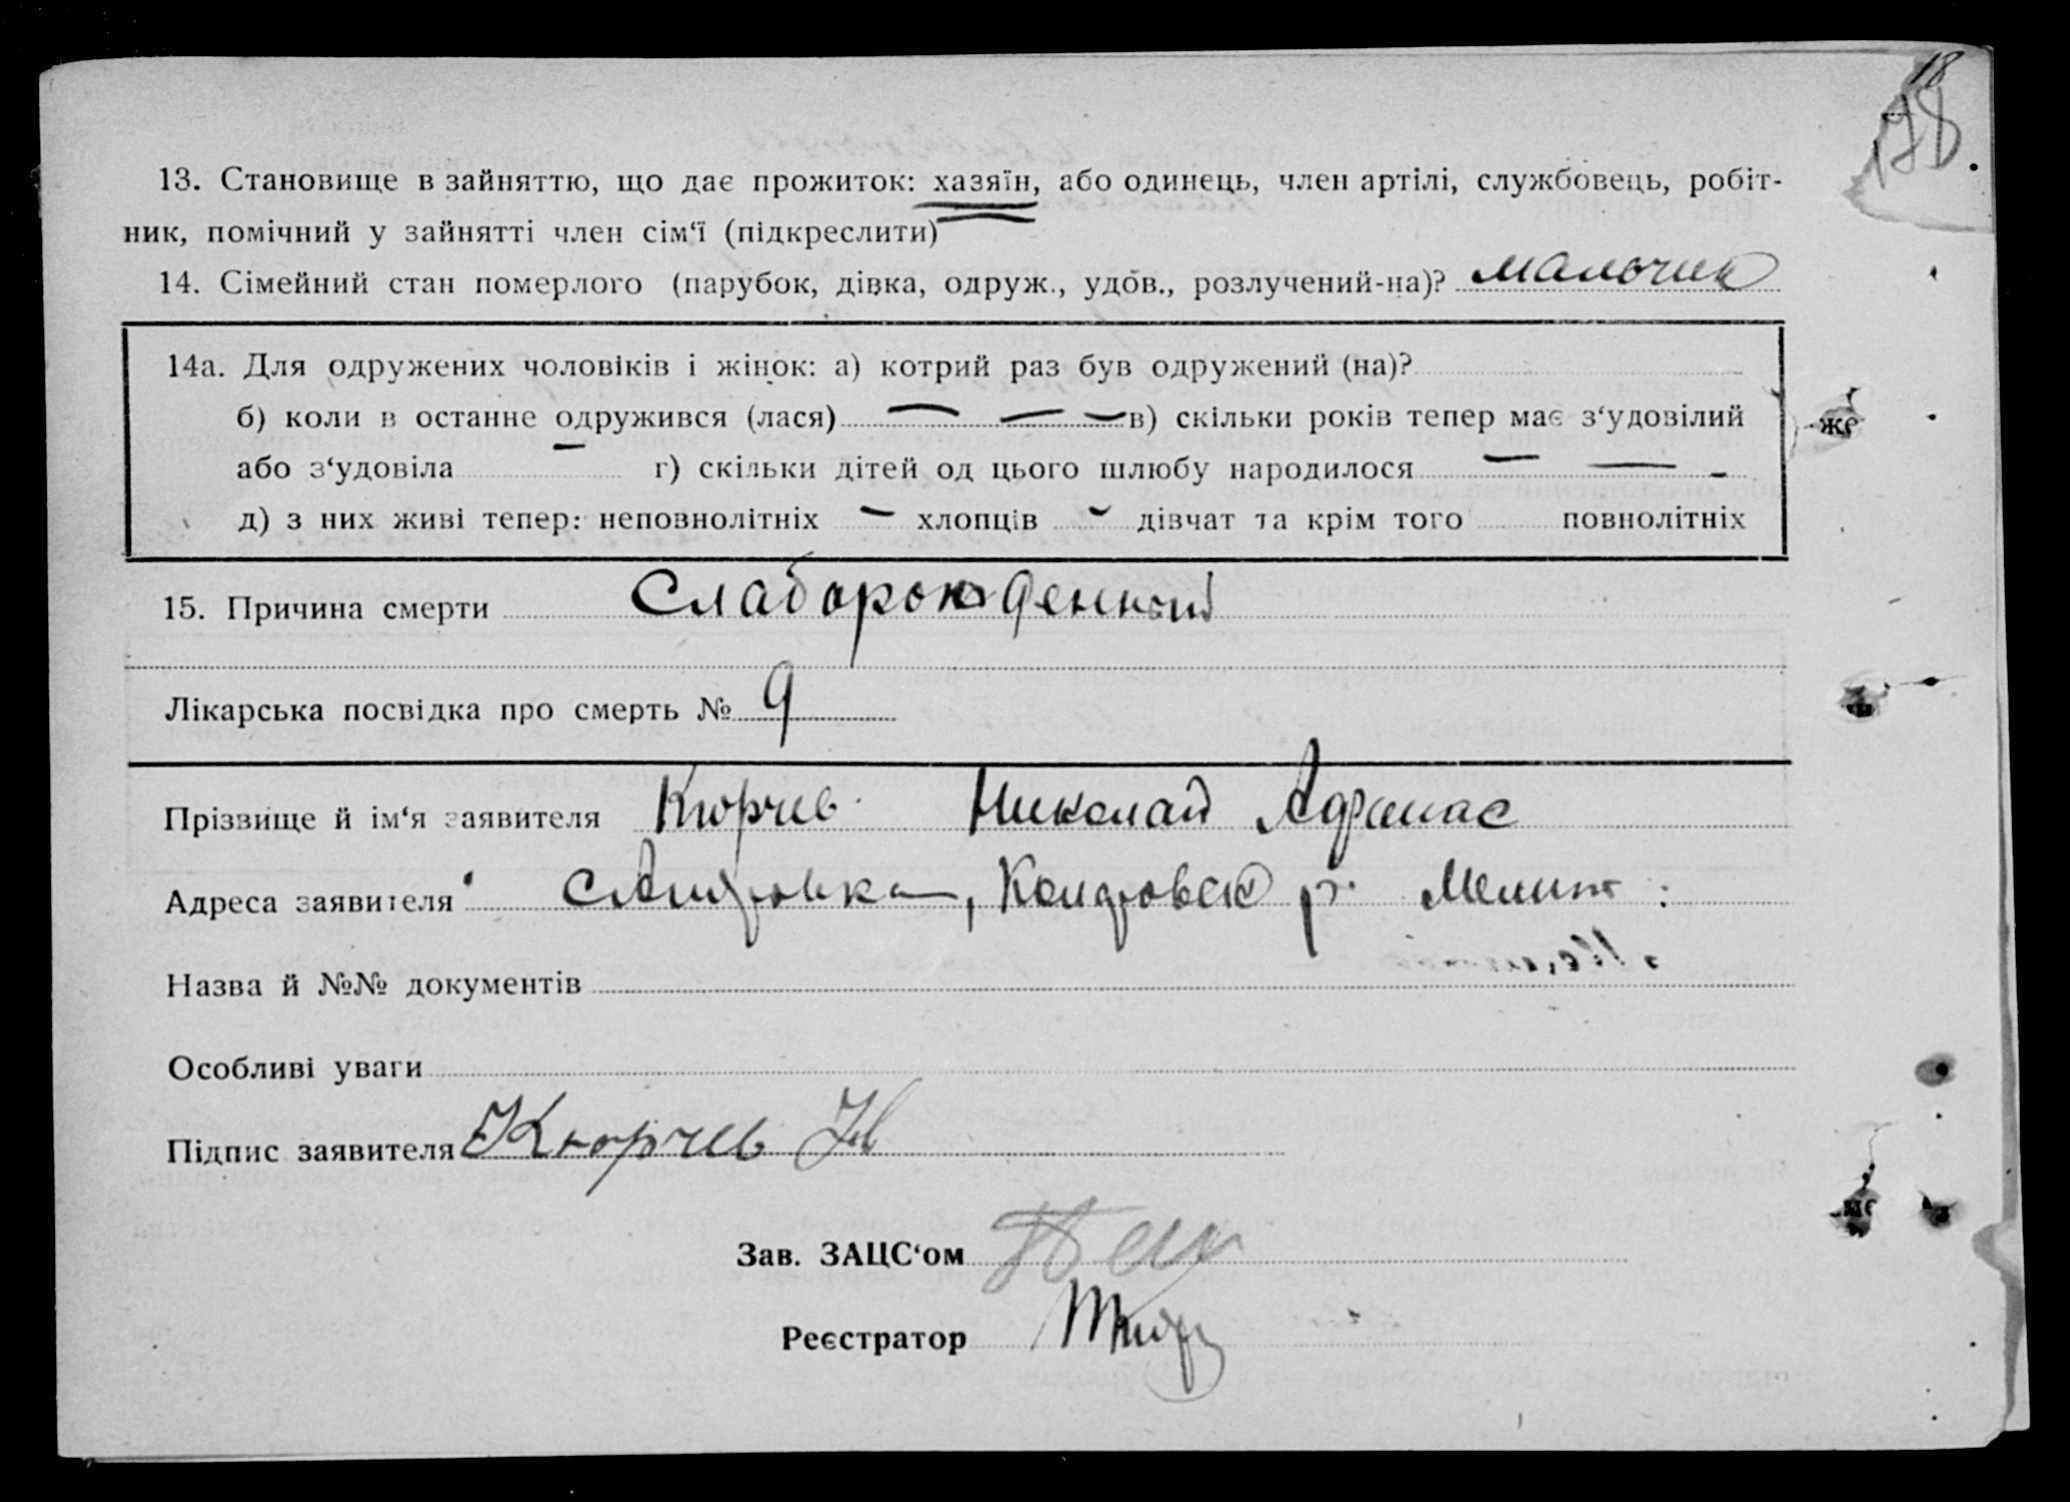 18
178
13. Становище в зайняттю, що дає прожиток: хазяїн, або одинець, член артілі, службовець, робіт-
ник, помічний у зайнятті член сім‘ї (підкреслити)
14. Сімейний стан померлого (парубок, дівка, одруж., удов., розлучений-на)? мальчик
14а. Для одружених чоловіків і жінок: а) котрий раз був одружений (на)?
б) коли в останне одружився (лася) — — — в) скільки років тепер має з‘удовілий
же
або з‘удовіла г) скільки дітей од цього шлюбу народилося — — -
д) з них живі тепер: неповнолітніх — хлопців - дівчат та крім того повнолітніх
15. Причина смерти Слаборожденный
Лікарська посвідка про смерть № 9
Прізвище й ім‘я заявителя Кюрчев Николай Афанас
Адреса заявителя с Андровка, Коларовск р. Мелит :
Назва й №№ документів
Особливі уваги
Підпис заявителя Кюрчев Н
Зав. ЗАЦС‘ом
Реєстратор